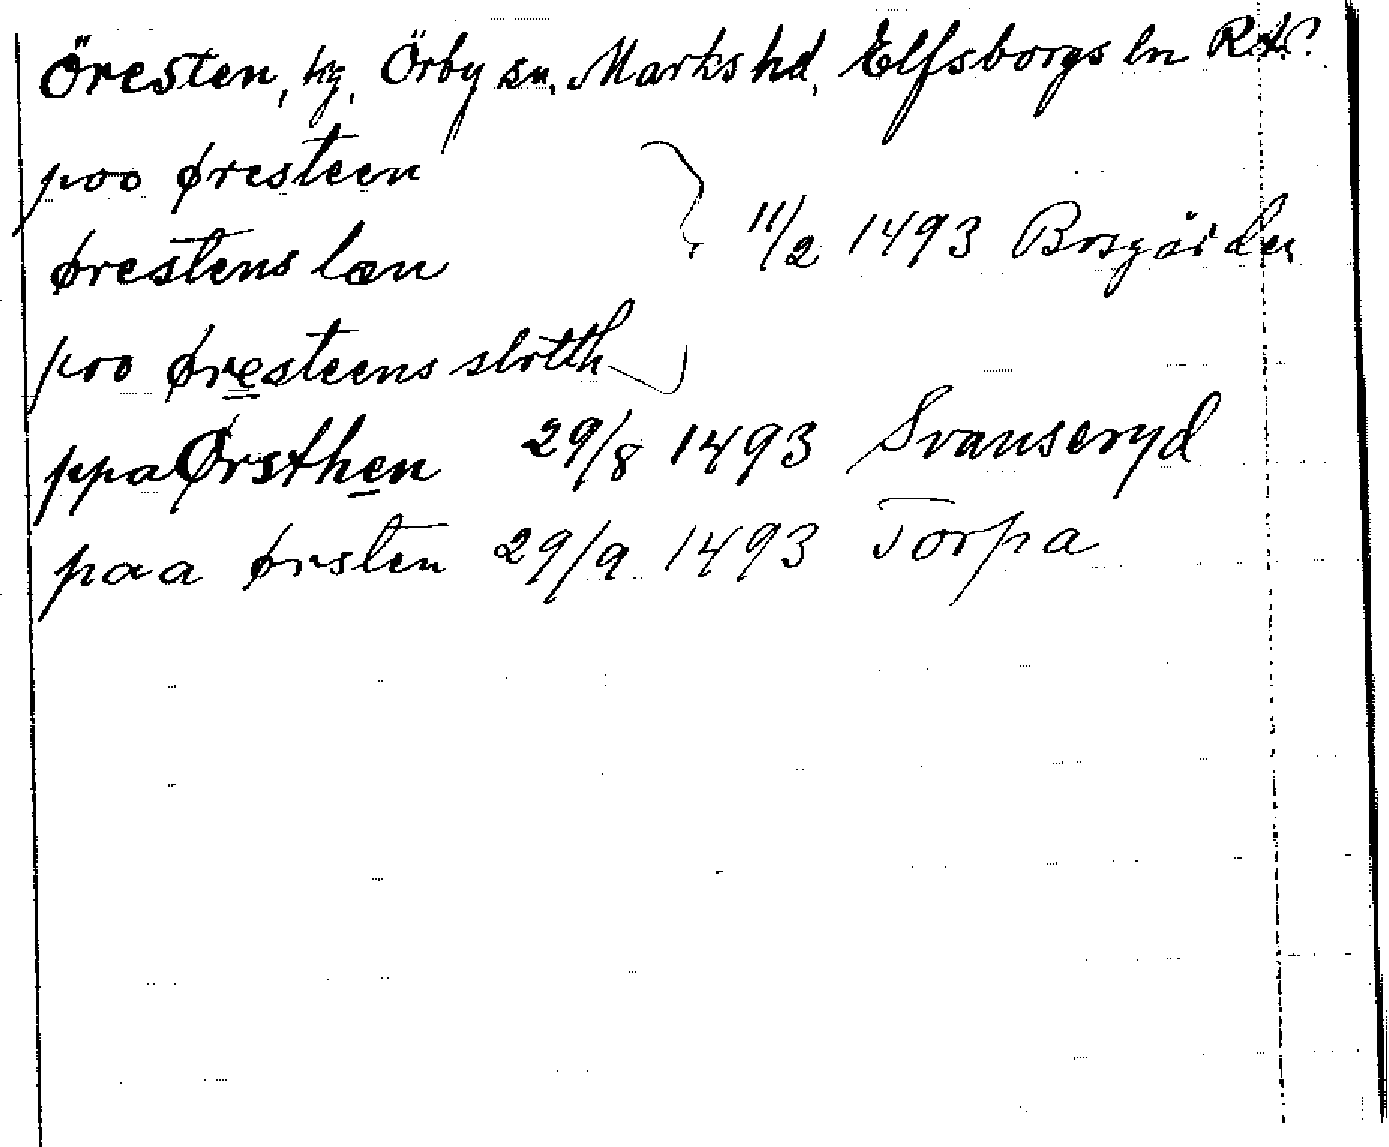 Öresten, hg, Örby sn, Marks hd, Elfsborgs ln RA?
poo øresteen
ørestens læn
11/2 1493 Bosgården
poo øresteens slotth
ppa Ørsthen 29/8 1493 Svanseryd
paa ørsten 29/9 1493 Torpa